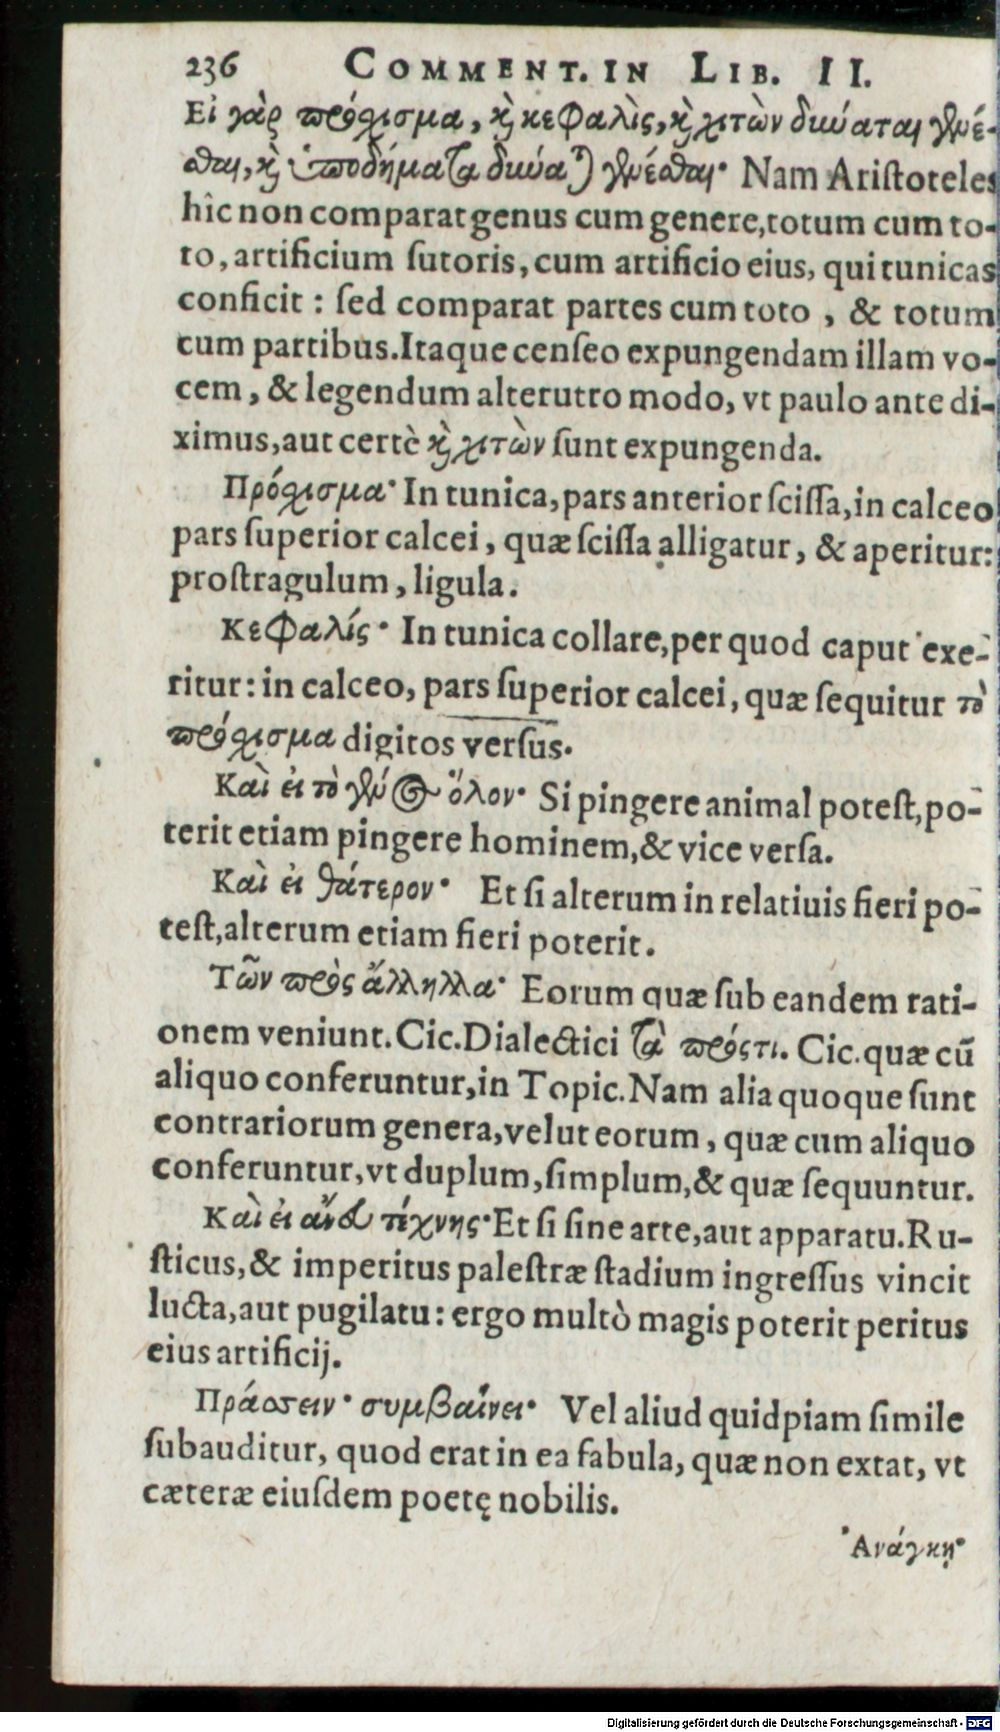 236 COMMENT. IN LIB. II.
Εἰ γὰρ πρόχισμα, κὶ κεφαλὶς, κὶ χιτὼν δύναται γενέ-
σθαι, κὶ ὑποδήματα δύναται γενέσθαι· Nam Aristoteles
hîc non comparat genus cum genere, totum cum to-
to, artificium sutoris, cum artificio eius, qui tunicas
conficit : sed comparat partes cum toto , & totum
cum partibus. Itaque censeo expungendam illam vo-
cem, & legendum alterutro modo, vt paulo ante di-
ximus, aut certè κὶ χιτὼν sunt expungenda.
Πρόχισμα· In tunica, pars anterior scissa, in calceo
pars superior calcei, quæ scissa alligatur, & aperitur:
prostragulum, ligula.
Κεφαλίς· In tunica collare, per quod caput exe-
ritur: in calceo, pars superior calcei, quæ sequitur τὸ
πρόχισμα digitos versus.
Καὶ εἰ τὸ γένος ὅλον· Si pingere animal potest, po-
terit etiam pingere hominem, & vice versa.
Καὶ εἰ θάτερον· Et si alterum in relatiuis fieri po-
test, alterum etiam fieri poterit.
Τῶν πρὸς ἄλληλλα· Eorum quæ sub eandem rati-
onem veniunt. Cic. Dialectici τὰ πρόςτι. Cic. quæ cū
aliquo conferuntur, in Topic. Nam alia quoque sunt
contrariorum genera, velut eorum, quæ cum aliquo
conferuntur, vt duplum, simplum, & quæ sequuntur.
Καὶ εἰ ἄνευ τέχνης· Et si sine arte, aut apparatu. Ru-
sticus, & imperitus palestræ stadium ingressus vincit
lucta, aut pugilatu: ergo multò magis poterit peritus
eius artificij.
Πράσσειν· συμβαίνει· Vel aliud quidpiam simile
subauditur, quod erat in ea fabula, quæ non extat, vt
cæteræ eiusdem poetę nobilis.
Ἀνάγκη·
Digitalisierung gefördert durch die Deutsche Forschungsgemeinschaft - DFG